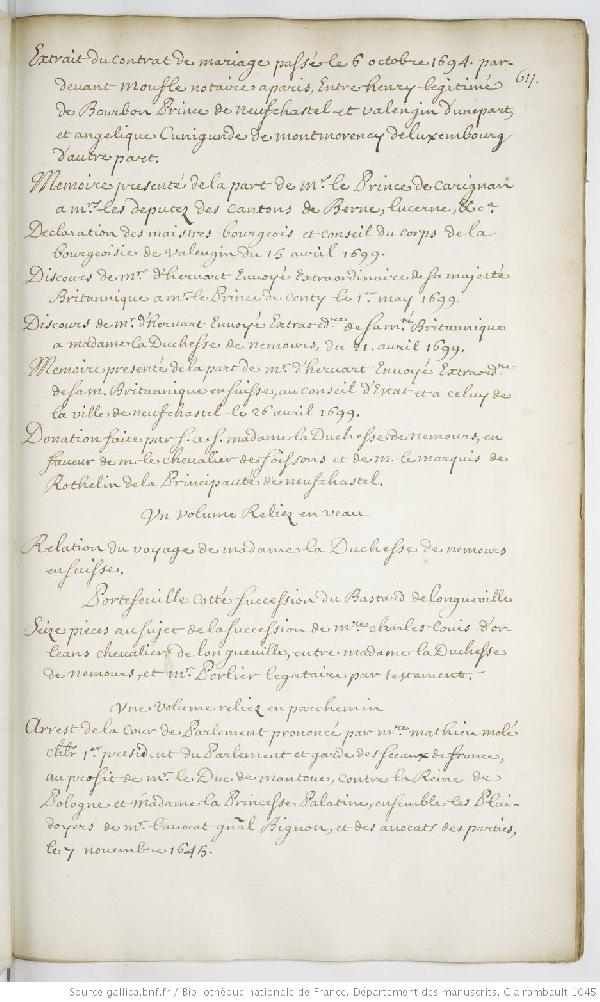 611.
Extrait du contrat de mariage passé le 6 octobre 1694. par-
devant Moufle notaire a paris, Entre henry legitimé
de Bourbon Prince de Neufchastel et valengin d'une part,
et angelique Cunigunde de montmorency de luxembourg
d'autre part.
Memoire presenté de la part de mr. le Prince de Carignan
a mrs. les deputez des cantons de Berne, lucerne, &ca.
Declaration des maistres bourgeois et conseil du corps de la
bourgeoisie de valengin du 15 avril 1699.
Discours de mr. d'hervart Envoyé Extraordinaire de sa majesté
Britannique a mr. le Prince de Conty le 1er may 1699.
Discours de mr. d'hervart Envoyé Extraordre. de sa mté. Britannique
a madame la Duchesse de nemours, du 21. avril 1699.
Memoire presenté de la part de mr. d'hervart Envoyé Extraordre
de sa m. Britannique en suisse, au conseil d'Estat et a celuy de
la ville de neufchastel le 26 avril 1699.
Donation faite par s. a. s. madame la Duchesse de nemours, en
faveur de mr le chevalier de soissons et de m. le marquis de
Rothelin de la Principauté de neufchastel.
Un volume Reliez en veau
Relation du voyage de madame la Duchesse de nemours
en suisse.
Portefeuille cotté succession du Bastard de longueville
Seize pieces au sujet de la succession de mre. charles Louis d'or-
leans chevalier de longueville, entre madame la Duchesse
de nemours, et mr. Porlier legataire par testament.
Une volume reliez en parchemin
Arrest de la cour de Parlement prononcé par mre mathieu molé
chlr 1er president du Parlement et garde des sceaux de france,
au profit de mr. le Duc de mantoue, contre la Reine de
Pologne et madame la Princesse Palatine, ensemble les Plai-
doyers de mr. l'avocat gnãl Bignon, et des avocats des parties,
le 7 novembre 1645.
Source gallica.bnf.fr / Bibliothèque nationale de France. Département des manuscrits. Clairambault 1045